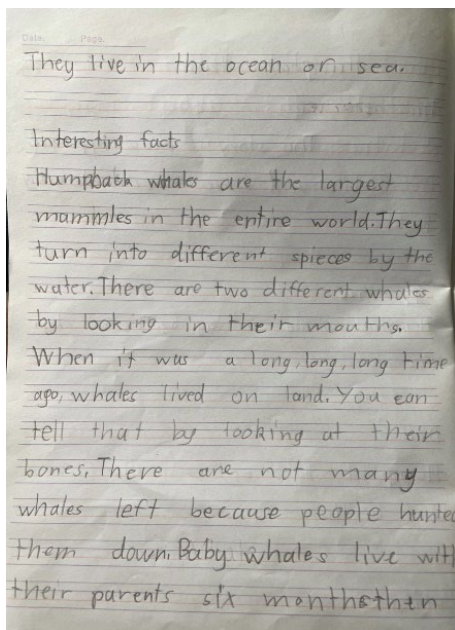 Date: Page:
They live in the ocean or sea.
Interesting facts
Humpback whales are the largest
mammles in the entire world. They
turn into different spieces by the
water. There are two different whales
by looking in their mouths.
When it was a long, long, long time
ago, whales lived on land. You can
tell that by looking at their
bones. There are not many
whales left because people hunted
them down. Baby whales live with
their parents six months then